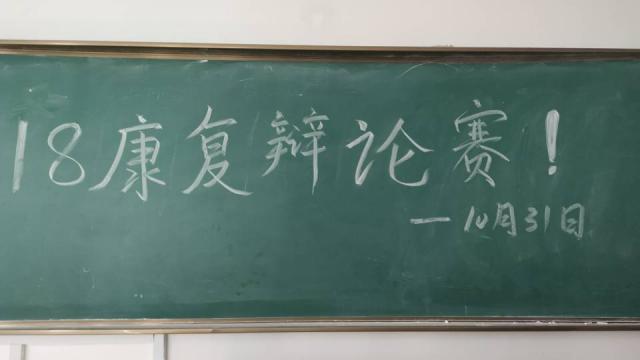 18康复辩论赛！
—10月31日